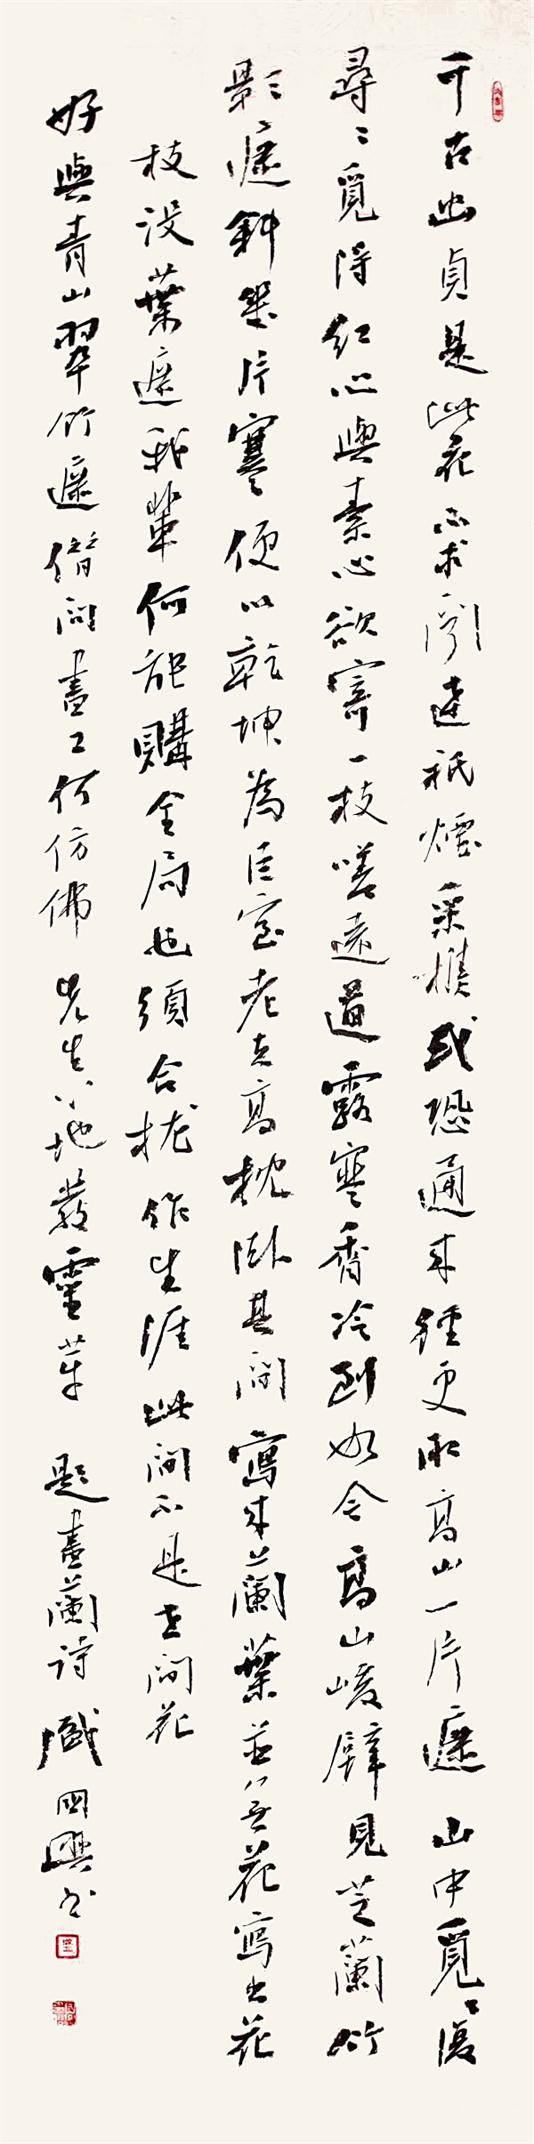 千古幽貞是此花不求聞達祇煙采樵或恐通來徑更取高山一片遮山中覓々復
尋々覓得紅心與素心欲寄一枝嗟遠道露寒香冷到如今高山峻壁見芝蘭竹
影遮斜幾片寒便以乾坤為巨室老夫高枕臥其間寫來蘭葉並無花寫出花
枝沒葉遮我輩何能購全局也須合攏作生涯此間不是世間花
好與青山翠竹遮借問畫工何仿佛先生心地發靈芽題畫蘭詩國興書